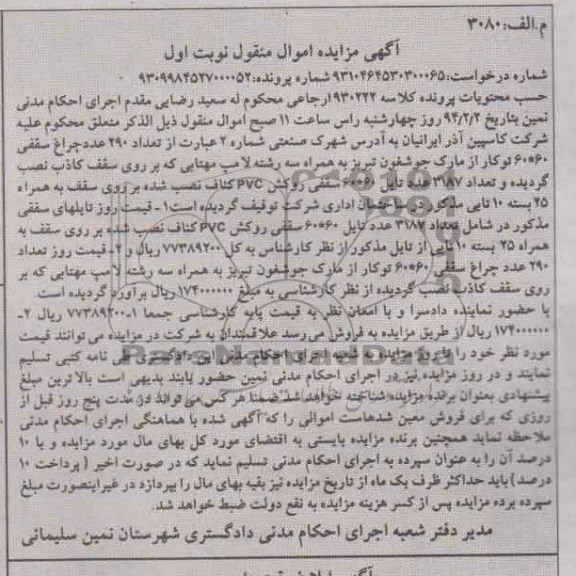 م.الف: ۳۰۸۰
آگهی مزایده اموال منقول نوبت اول
شماره درخواست: ۹۳۱۰۴۶۴۵۳۰۳۰۰۰۶۵ شماره پرونده: ۹۳۰۹۹۸۴۵۲۷۰۰۰۰۵۲
حسب محتویات پرونده کلاسه ۹۳۰۲۲۲ ارجاعی محکوم له سعید رضایی مقدم اجرای احکام مدنی
نمین بتاریخ ۹۴/۲/۲ روز چهارشنبه راس ساعت ۱۱ صبح اموال منقول ذیل الذکر متعلق محکوم علیه
شرکت کاسپین آذر ایرانیان به آدرس شهرک صنعتی شماره ۲ عبارت از تعداد ۲۹۰ عدد چراغ سقفی
۶۰*۶۰ توکار از مارک جوشغون تبریز به همراه سه رشته لامپ مهتابی که بر روی سقف کاذب نصب
گردیده و تعداد ۳۱۸۷ عدد تایل ۶۰*۶۰ سقفی روکش PVC کناف نصب شده بر روی سقف به همراه
۲۵ بسته ۱۰ تایی مذکور در ساختمان اداری شرکت توقیف گردیده است ۱- قیمت روز تایلهای سقفی
مذکور در شامل تعداد ۳۱۸۷ عدد تایل ۶۰*۶۰ سقفی روکش PVC کناف نصب شده بر روی سقف به
همراه ۲۵ بسته ۱۰ تایی از تایل مذکور از نظر کارشناس به کل ۷۷۳۸۹۲۰۰ ریال و ۲- قیمت روز تعداد
۲۹۰ عدد چراغ سقفی ۶۰*۶۰ توکار از مارک جوشغون تبریز به همراه سه رشته لامپ مهتابی که بر
روی سقف کاذب نصب گردیده از نظر کارشناسی به مبلغ ۱۷۴۰۰۰۰۰۰ ریال برآورد گردیده است
با حضور نماینده دادسرا و با امعان نظر به قیمت پایه کارشناسی جمعا ۱- ۷۷۳۸۹۲۰۰ ریال ۲-
۱۷۴۰۰۰۰۰۰ ریال از طریق مزایده به فروش می رسد علاقمندان به شرکت در مزایده می توانند قیمت
مورد نظر خود را تا روز مزایده به شعبه اجرای احکام مدنی این دادگستری طی نامه کتبی تسلیم
نمایند و در روز مزایده نیز در اجرای احکام مدنی نمین حضور یابند بدیهی است بالاترین مبلغ
پیشنهادی بعنوان برنده مزایده شناخته خواهد شد ضمنا هر کس می تواند در مدت پنج روز قبل از
روزی که برای فروش معین شدهاست اموالی را که آگهی شده با هماهنگی اجرای احکام مدنی
ملاحظه نماید همچنین برنده مزایده بایستی به اقتضای مورد کل بهای مال مورد مزایده و یا ۱۰
درصد آن را به عنوان سپرده به اجرای احکام مدنی تسلیم نماید که در صورت اخیر (پرداخت ۱۰
درصد) باید حداکثر ظرف یک ماه از تاریخ مزایده نیز بقیه بهای مال را بپردازد در غیر اینصورت مبلغ
سپرده برده مزایده پس از کسر هزینه مزایده به نفع دولت ضبط خواهد شد.
مدیر دفتر شعبه اجرای احکام مدنی دادگستری شهرستان نمین سلیمانی